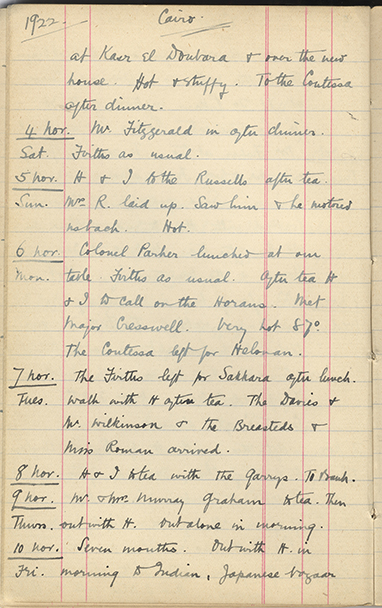 1922. Cairo.
at Kasr El Doubara & over the new
house. Hot & stuffy. To the Contessa
after dinner.
4 Nov. Mr. Fitzgerald in after dinner.
Sat. Firths as usual.
5 Nov. H & I to the Russells after tea.
Sun. Mrs R. laid up. Saw him & he motored
us back. Hot.
6 Nov. Colonel Parker lunched at our
Mon. table. Firths as usual. After tea H
& I to call on the Horans. Met
Major Cresswell. Very hot 87°.
The Contessa left for Helouan.
7 Nov. The Firths left for Sakkara after lunch.
Tues. Walk with H after tea. The Davies &
Mr. Wilkinson & the Breasteds &
Miss Roman arrived.
8 Nov. H & I to tea with the Garrys. To Bank.
9 Nov. Mr. & Mrs. Murray Graham to tea. Then
Thurs. out with H. Out alone in morning.
10 Nov. Seven months. Out with H. in
Fri. morning to Indian, Japanese bazaar